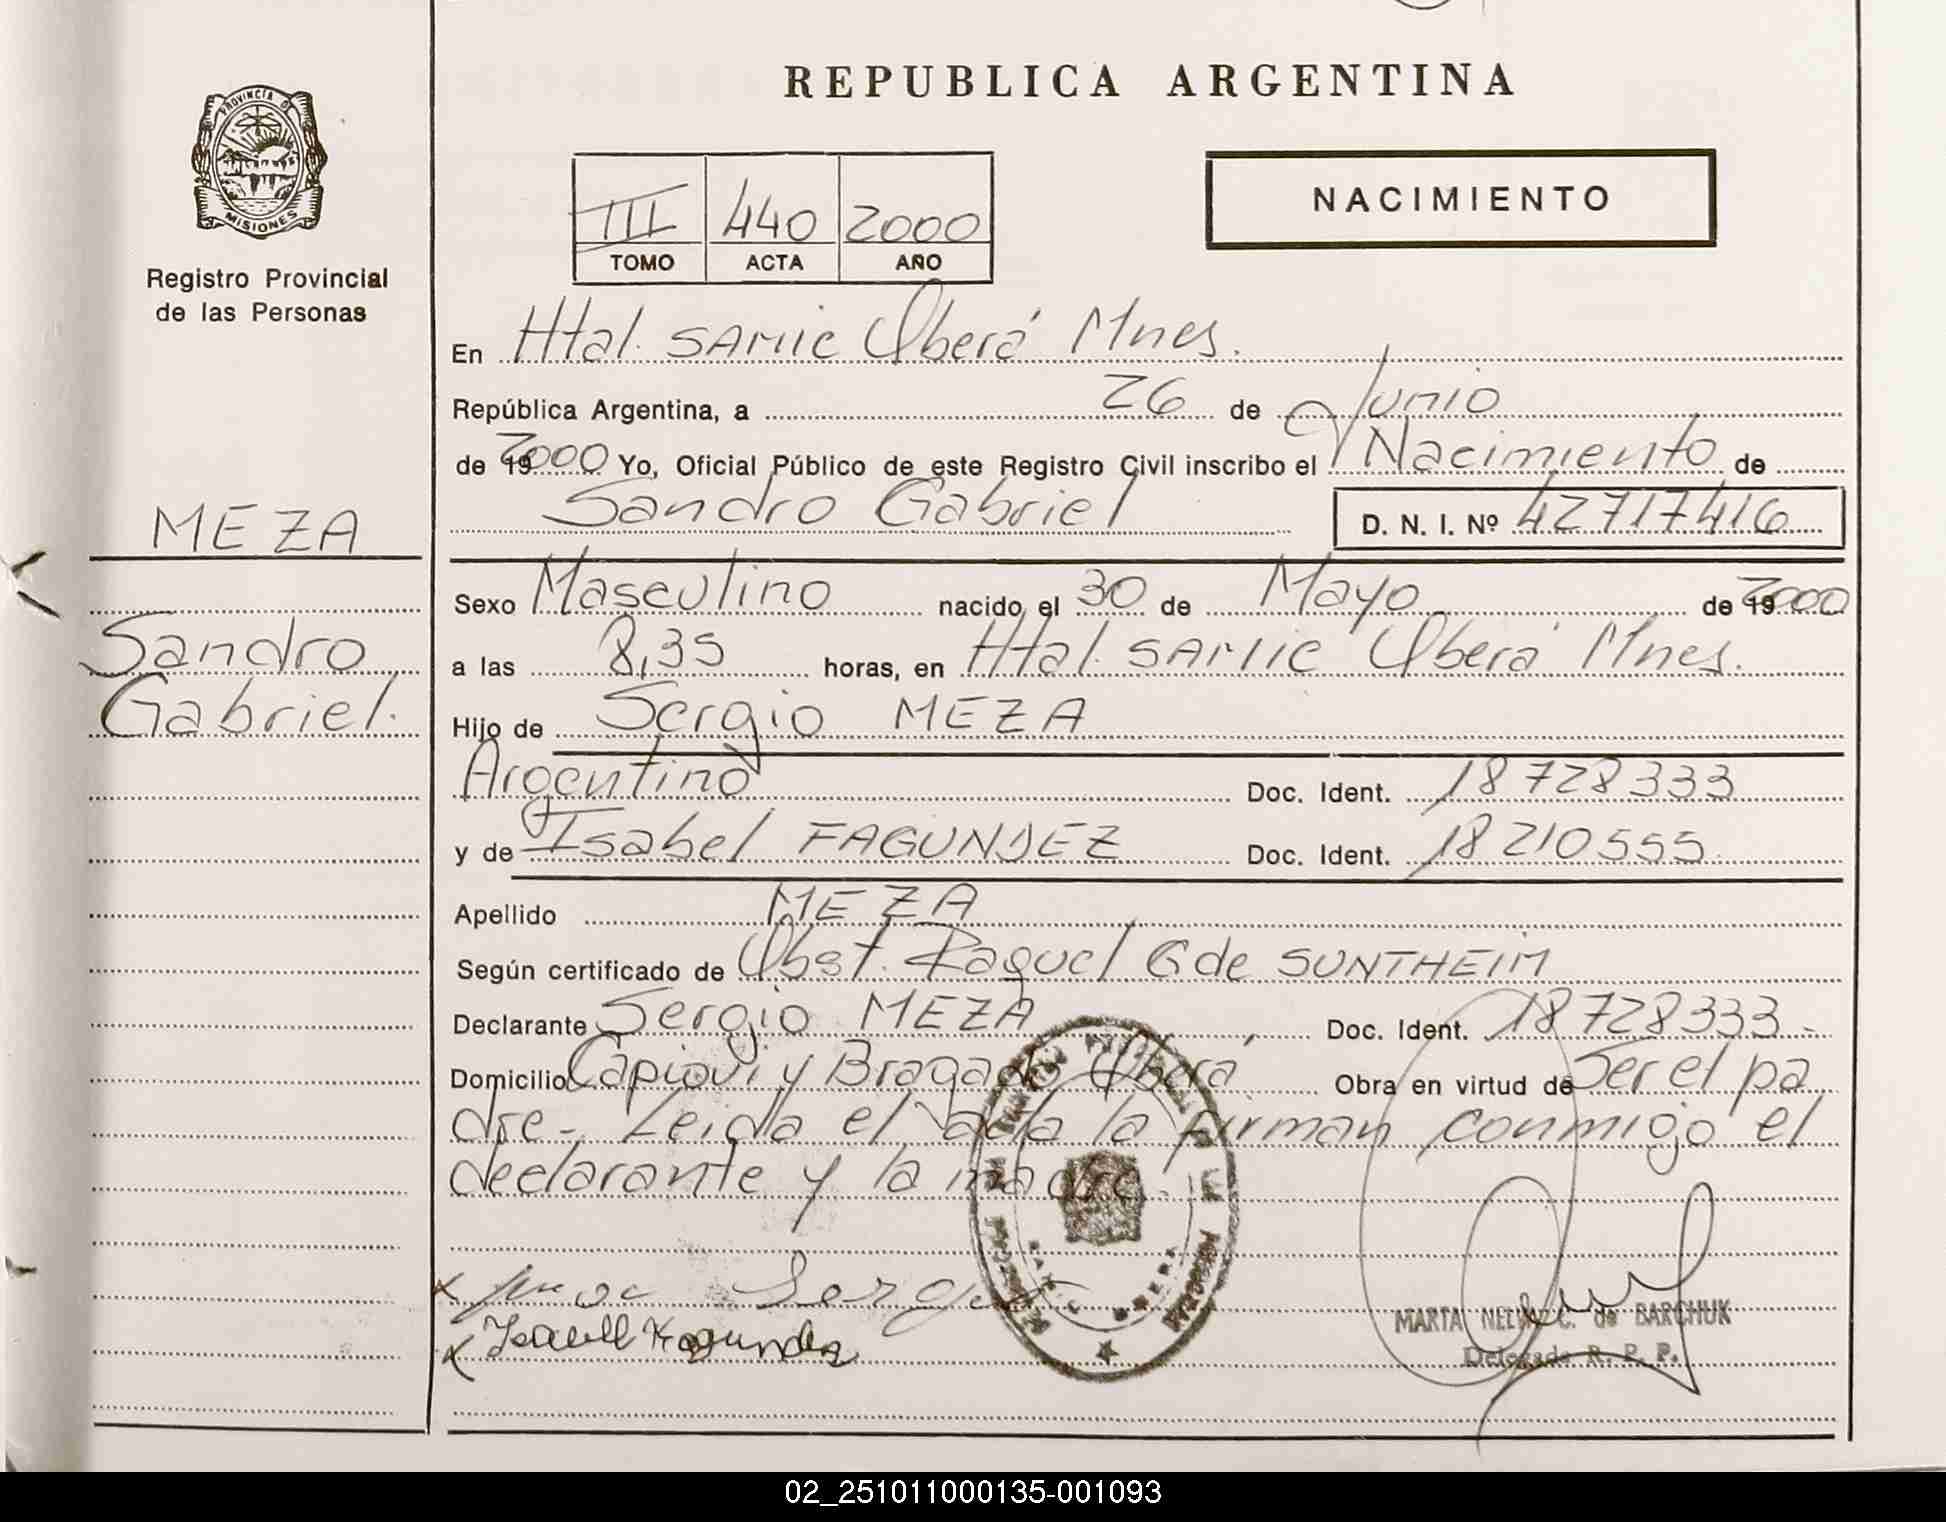 REPUBLICA ARGENTINA
PROVINCIA D
MISIONES
Registro Provincial
de las Personas
III 440 2000
TOMO ACTA AÑO
NACIMIENTO
En Htal. SAMIC Oberá Mnes.
República Argentina, a 26 de Junio
de 2000 Yo, Oficial Público de este Registro Civil inscribo el Nacimiento de
Sandro Gabriel D. N. I. Nº 42717416
MEZA
Sandro
Gabriel.
Sexo Masculino nacido el 30 de Mayo de 2000
a las 8,35 horas, en Htal. SAMIC Oberá Mnes.
Hijo de Sergio MEZA
Argentino Doc. Ident. 18728333
y de Isabel FAGUNDEZ Doc. Ident. 18210555
Apellido MEZA
Según certificado de Obst. Raquel G de SUNTHEIM
Declarante Sergio MEZA Doc. Ident. 18728333-
Domicilio Capiovi y Bragado Oberá Obra en virtud de Ser el pa
dre- Leida el acta la firman conmigo el
declarante y la madre.
x Sergio
x Fagundez
MARTA C. de BARCHUK
Delegada R. P. P.
02_251011000135-001093